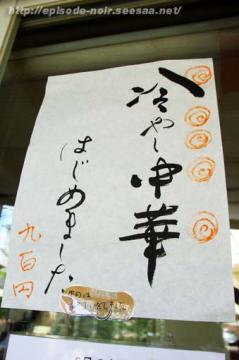 http://episode-noir.seesaa.net/
冷やし中華
はじめました
九百円